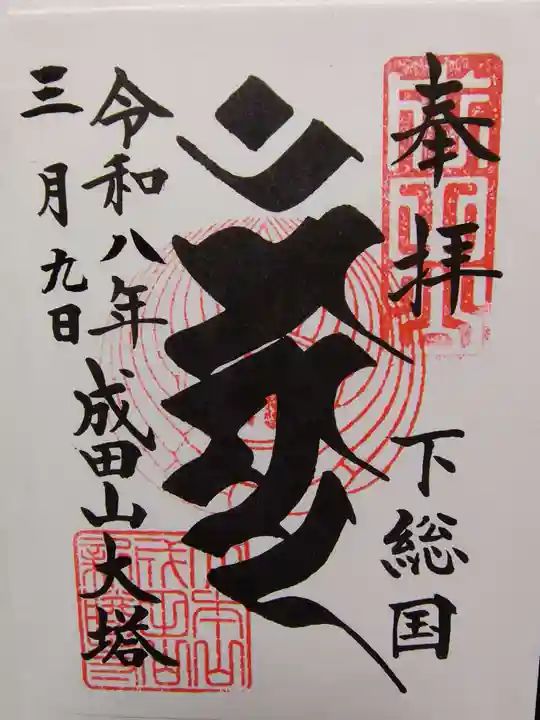 奉拝
下総国
令和八年
成田山大塔
三月九日